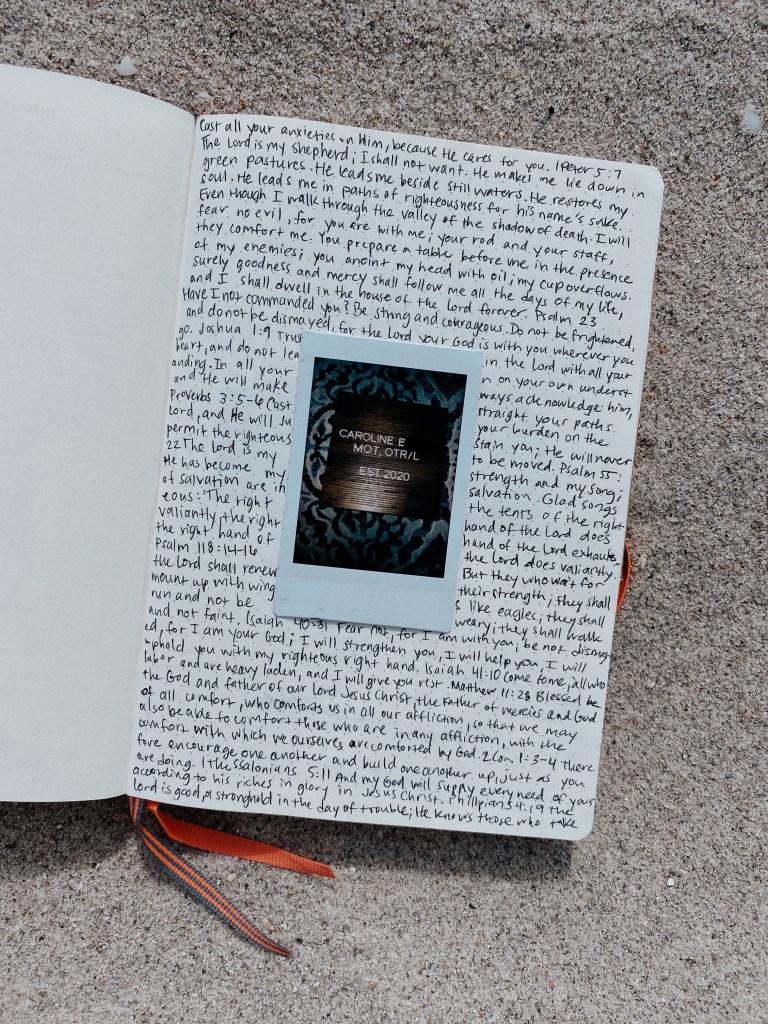 Cast all your anxieties on Him, because He cares for you. 1 Peter 5:7
The Lord is my shepherd; I shall not want. He makes me lie down in
green pastures. He leads me beside still waters. He restores my
soul. He leads me in paths of righteousness for his name's sake.
Even though I walk through the valley of the shadow of death. I will
fear no evil, for you are with me; your rod and your staff,
they comfort me. You prepare a table before me in the presence
of my enemies; you anoint my head with oil; my cup overflows.
surely goodness and mercy shall follow me all the days of my life,
and I shall dwell in the house of the Lord forever. Psalm 23
Have I not commanded you? Be strong and courageous. Do not be frightened,
and do not be dismayed, for the Lord your God is with you wherever you
go. Joshua 1:9 Trus in the Lord with all your
heart, and do not lea n on your own underst
anding. In all your ways acknowledge him,
and He will make straight your paths.
Proverbs 3:5-6 Cast your burden on the
Lord, and He will su stain you; He will never
permit the righteous to be moved. Psalm 55:
22 The Lord is my strength and my song;
He has become my salvation. Glad songs
of salvation are in the tents of the right
eous: "The right hand of the Lord does
valiantly, the right hand of the Lord exhaults
the right hand of the Lord does valiantly.
Psalm 118:14-16 But they who wait for
the lord shall renew their strength; they shall
mount up with wing s like eagles; they shall
run and not be weary; they shall walk
and not faint. Isaiah 40:31 Fear not, for I am with you; be not dismay
ed, for I am your God; I will strengthen you, I will help you, I will
uphold you with my righteous right hand. Isaiah 41:10 Come to me, all who
labor and are heavy laden, and I will give you rest. Matthew 11:28 Blessed be
the God and father of our lord Jesus Christ, the Father of mercies and God
of all comfort, who comforts us in all our affliction, so that we may
also be able to comfort those who are in any affliction, with the
comfort with which we ourselves are comforted by God. 2 Cor. 1:3-4 there
fore encourage one another and build one another up, just as you
are doing. 1 Thessalonians 5:11 And my God will supply every need of yours
according to his riches in glory in Jesus Christ. Phillipians 4:19 The
lord is good, a stronghold in the day of trouble; He knows those who take
CAROLINE E
MOT, OTR/L
EST. 2020